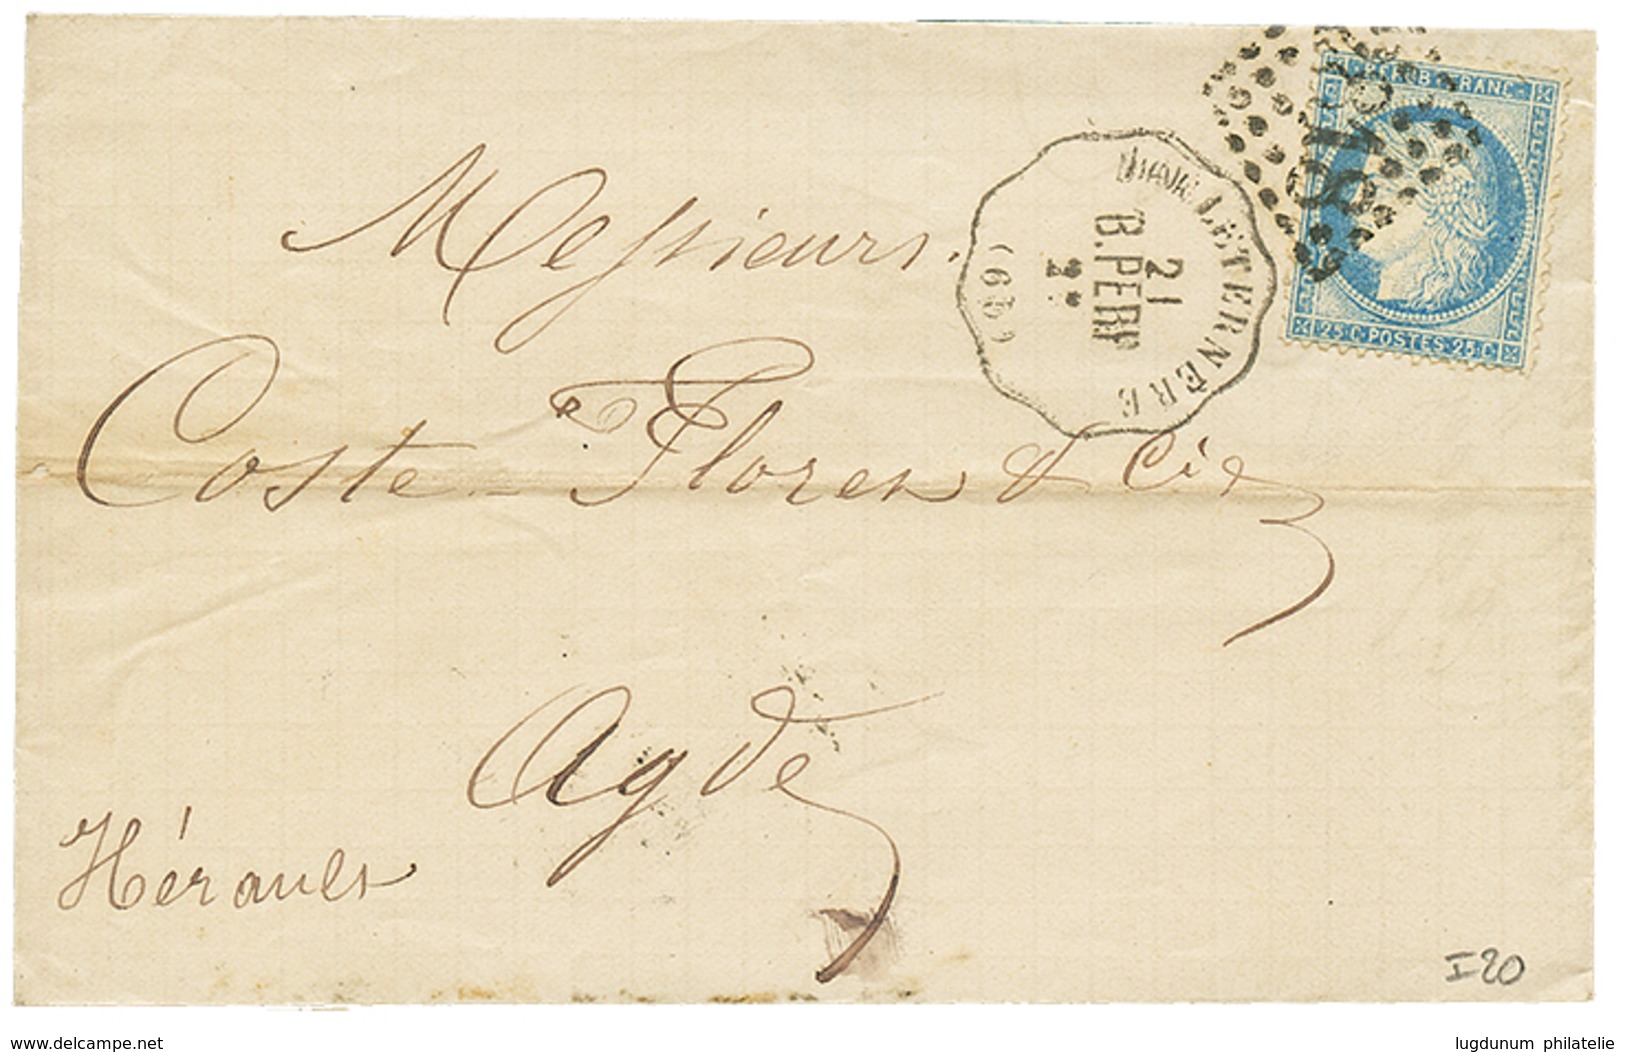 REPUB. FRANC.
25 C. POSTES 25 C.
818
LET ERNÈRE
21
B. PERP
(69)
Messieurs.
Coste-Floret & Cie
Agde
Hérault
I20
www.delcampe.net
lugdunum philatelie